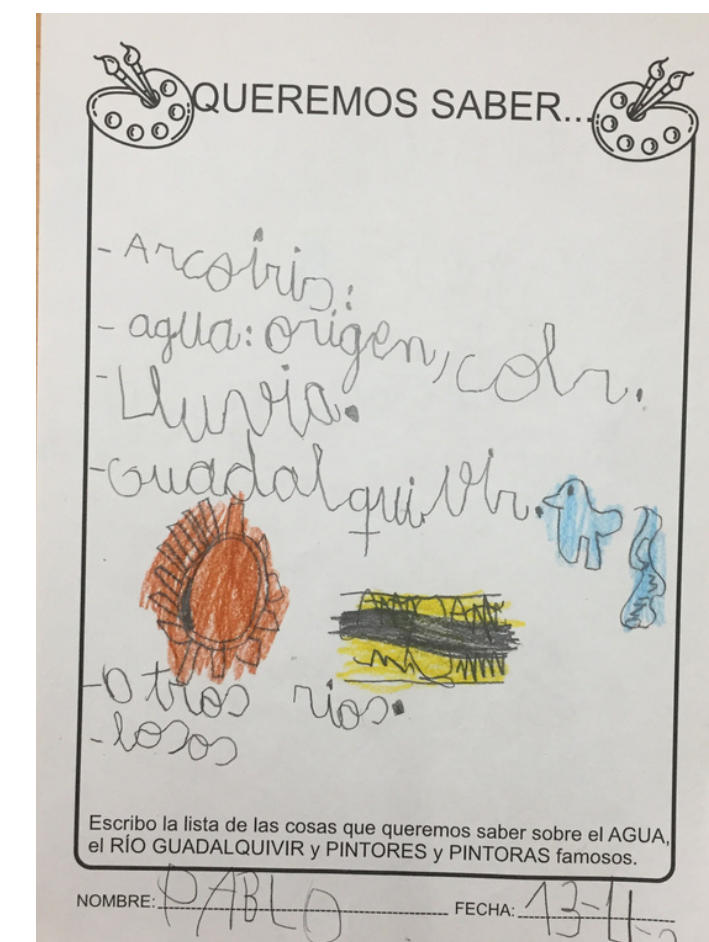 QUEREMOS SABER...
- Arcoiris:
- agua: origen, colr.
- Lluvia.
- Guadalquivir.
- Otros rios.
- losos
Escribo la lista de las cosas que queremos saber sobre el AGUA,
el RÍO GUADALQUIVIR y PINTORES y PINTORAS famosos.
NOMBRE: PABLO FECHA: 13-11-